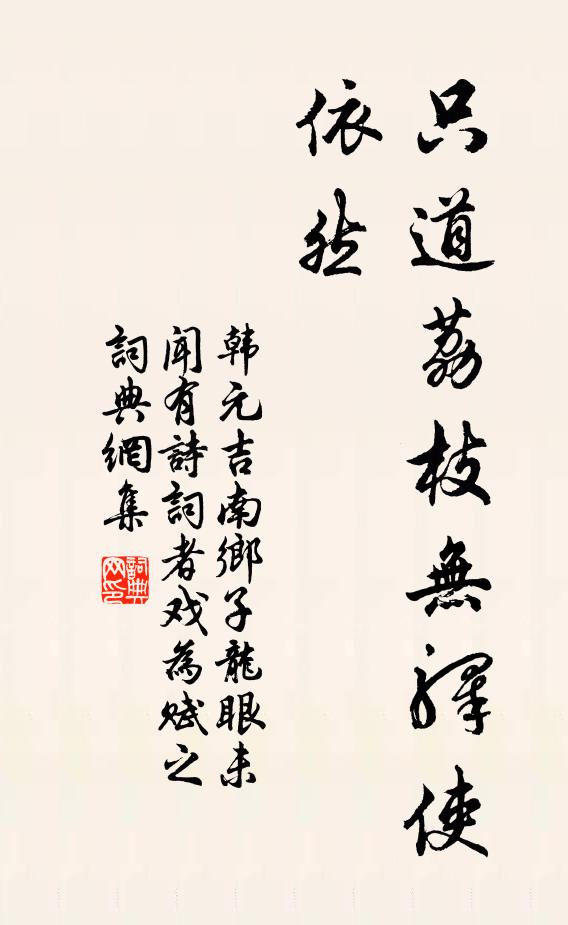 只道荔枝無驛使
依然
韩元吉南鄉子龍眼未
闻有詩詞者戏為赋之
詞典網集
詞典
网印